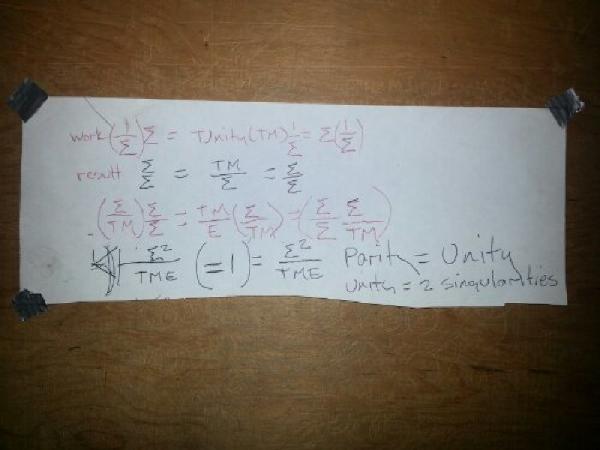 work (1/Σ) Σ = TUnity(TM) 1/Σ = Σ(1/Σ)
result Σ/Σ = TM/Σ = Σ/Σ
(Σ/TM) Σ/Σ = TM/E (Σ/TM) = (Σ/Σ Σ/TM)
Σ²/TME (=1) = Σ²/TME Parity = Unity
Unity = 2 singularities